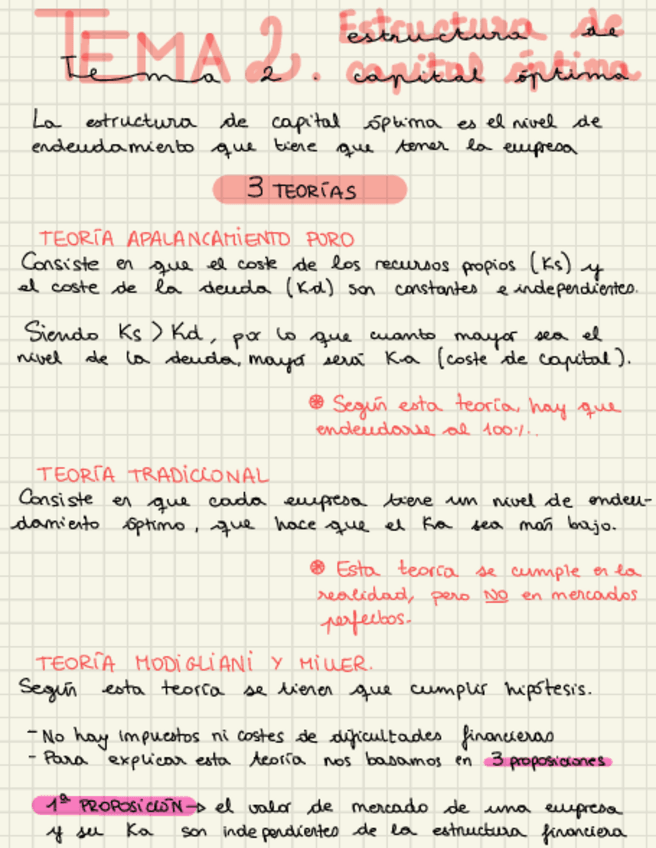 TEMA 2. Estructura de
capital óptima
estructura de
Tema 2. capital óptima
La estructura de capital óptima es el nivel de
endeudamiento que tiene que tener la empresa
3 TEORÍAS
TEORÍA APALANCAMIENTO PURO
Consiste en que el coste de los recursos propios (Ks) y
el coste de la deuda (Kd) son constantes e independientes.
Siendo Ks > Kd, por lo que cuanto mayor sea el
nivel de la deuda, mayor será Ka (coste de capital).
Según esta teoría, hay que
endeudarse al 100%.
TEORÍA TRADICIONAL
Consiste en que cada empresa tiene un nivel de endeu-
damiento óptimo, que hace que el Ka sea más bajo.
Esta teoría se cumple en la
realidad, pero NO en mercados
perfectos.
TEORÍA MODIGLIANI Y MILLER.
Según esta teoría se tienen que cumplir hipótesis.
- No hay impuestos ni costes de dificultades financieras
- Para explicar esta teoría nos basamos en 3 proposiciones
1ª PROPOSICIÓN → el valor de mercado de una empresa
y su Ka son independientes de la estructura financiera